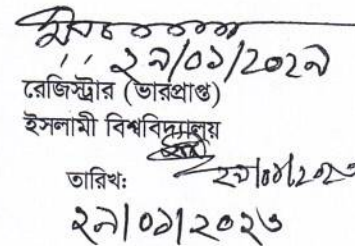 ২৯/০১/2023
রেজিস্ট্রার (ভারপ্রাপ্ত)
ইসলামী বিশ্ববিদ্যালয়
২৯/০১/২০২৩
তারিখ:
২৯/০১/২০২৩